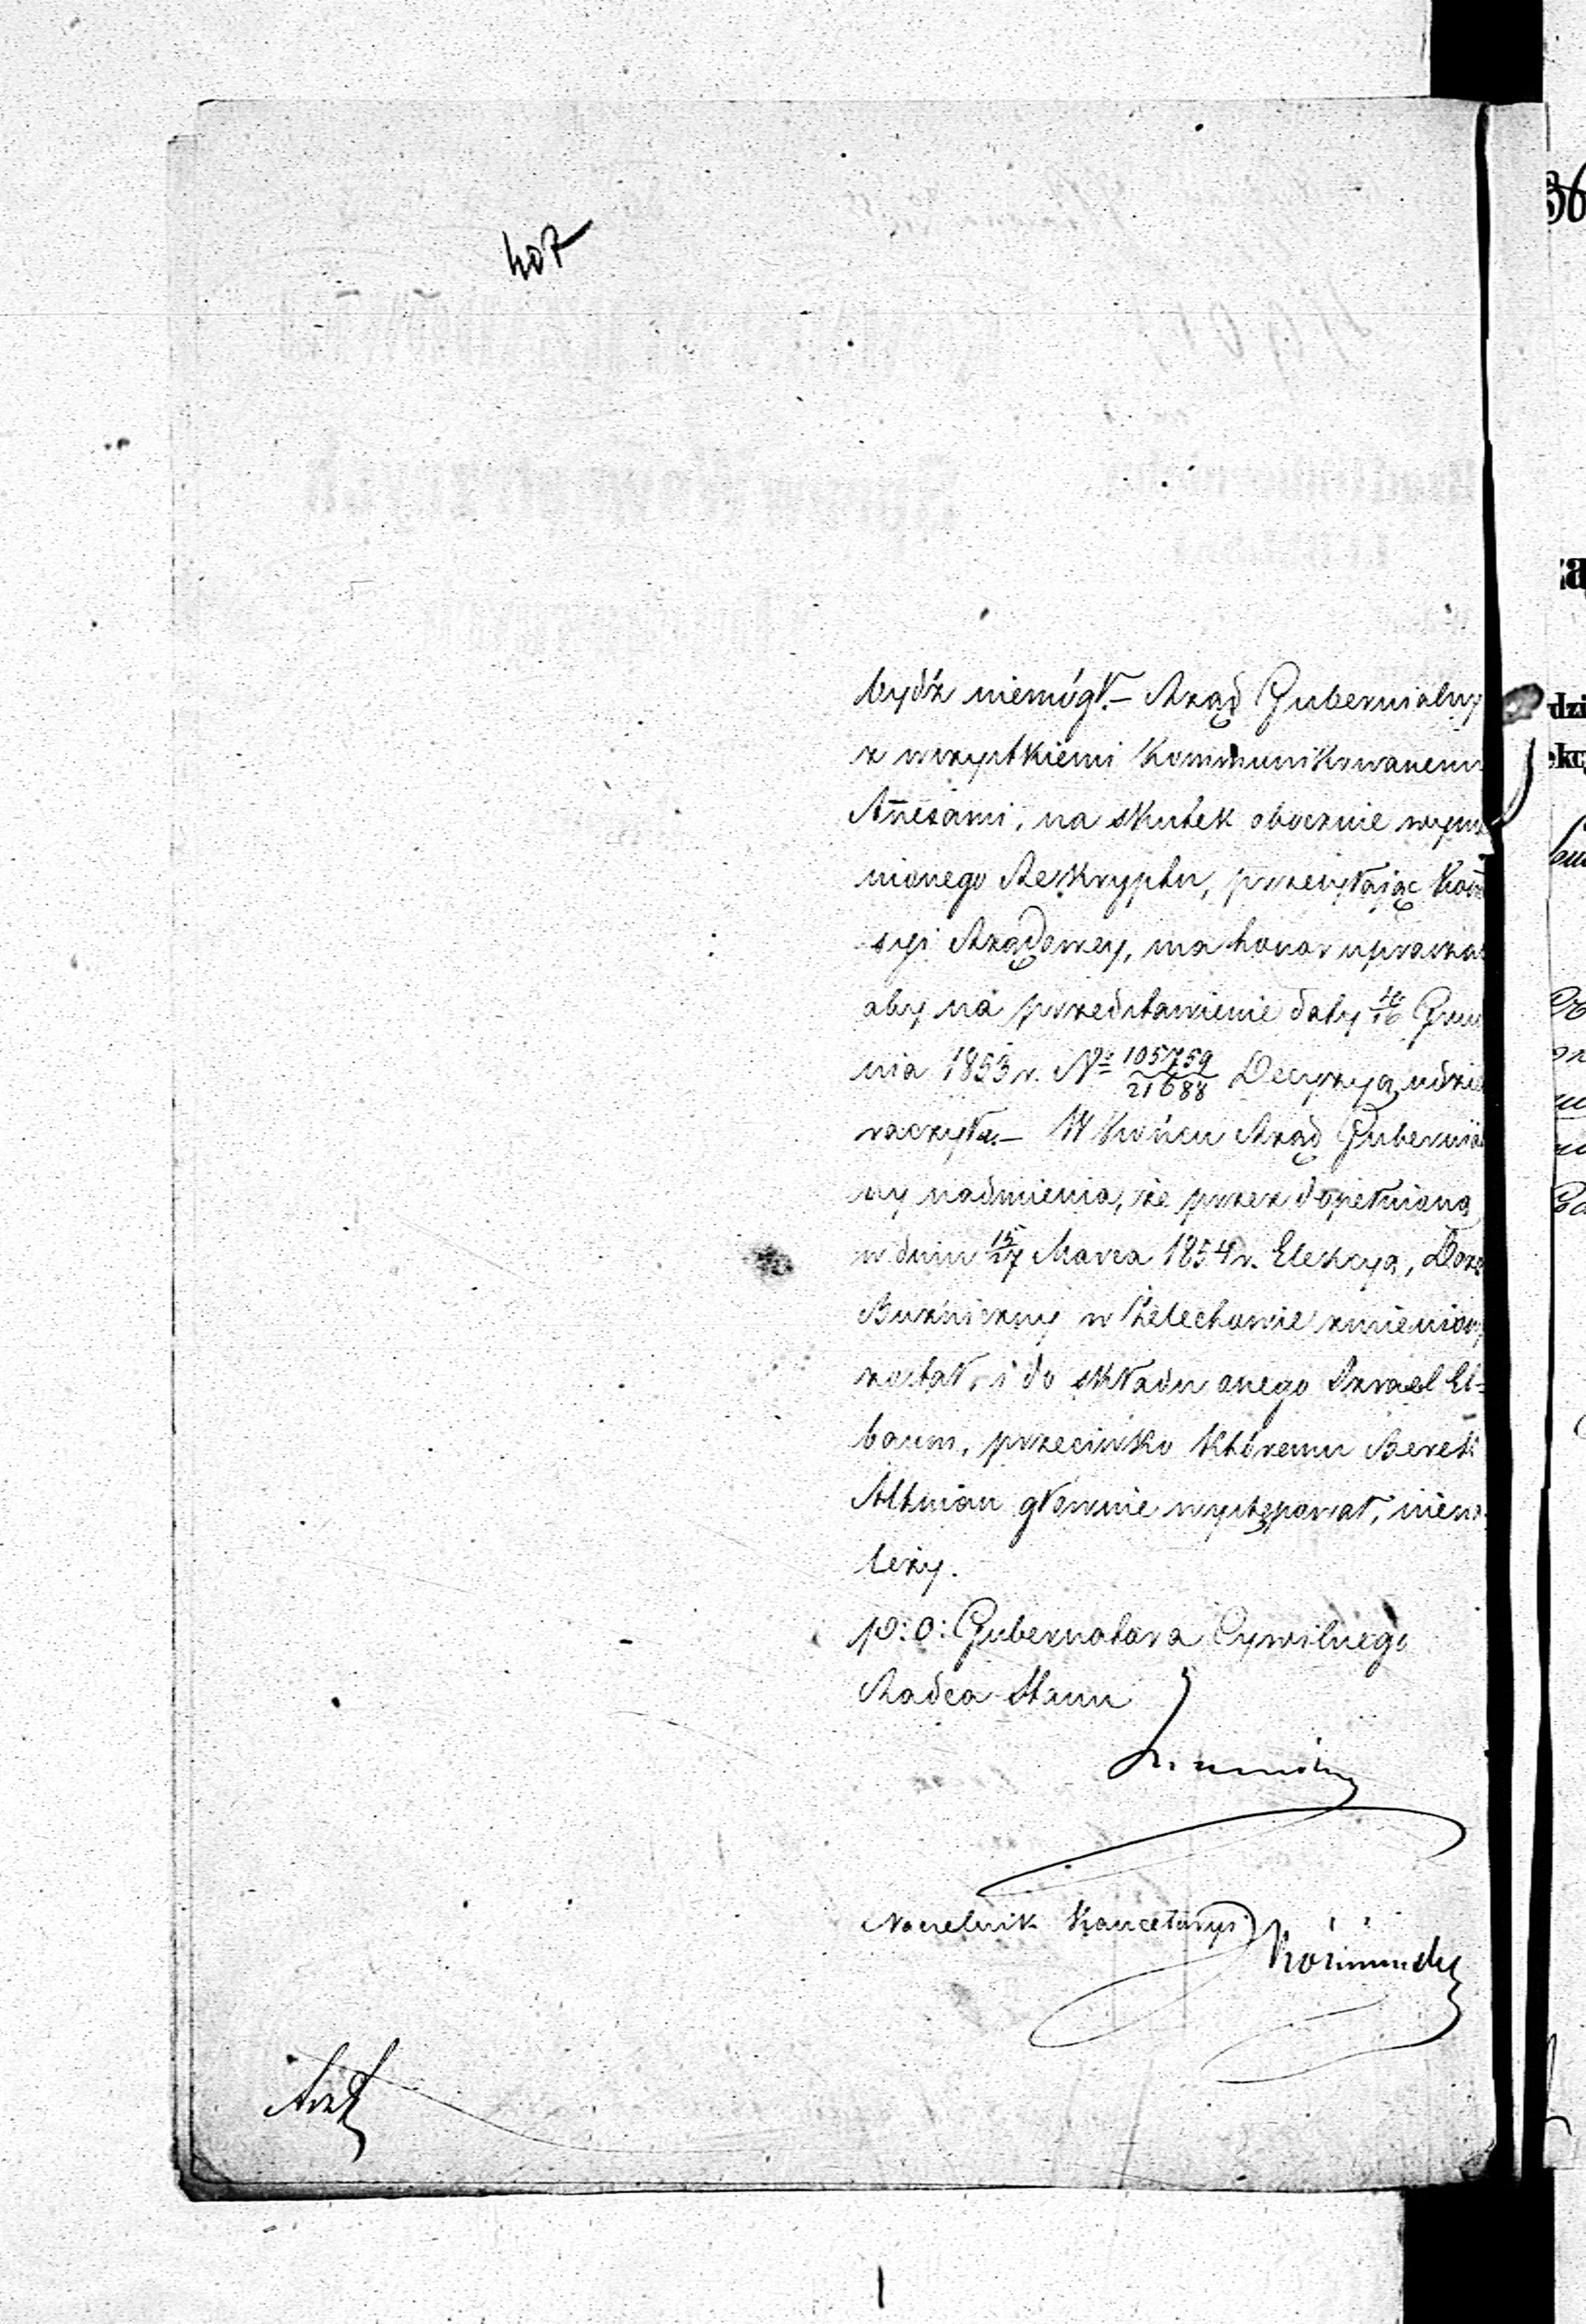 407
bydź niemógł.— Rząd Gubernialny
z wszystkiemi kommunikowanemi
Annexami, na skutek obocznie wymie
nionego Reskryptu, przesyłając Kom̄
syi Rządowey, ma honor upraszać
aby na przedstawienie daty 4/16 Grud
nia 1853 r. No 105759/21688 Decyzyą udzie
raczyła.— W końcu Rząd Gubernial
ny nadmienia, że przez dopełnioną
w dniu 15/27 Marca 1854 r. Elekcyą, Dozór
Bużniczny w Żelechowie zmieniony
został, i do składu onego Izrael El=
baum, przeciwko któremu Berek
Altman głownie występował, niena
leży.
p: o: Gubernatora Cywilnego
Radca Stanu
Naczelnik Kancelaryi